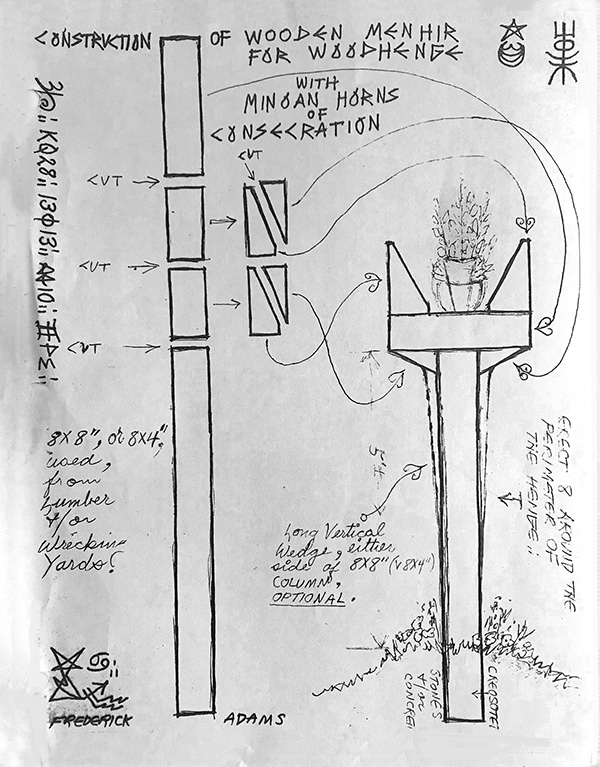 CONSTRUCTION OF WOODEN MENHIR
FOR WOODHENGE
WITH
MINOAN HORNS
OF
CONSECRATION
CUT
CUT
CUT
CUT
8X8", or 8X4",
used,
from
Lumber
&/or
Wrecking
Yards!
5 ft
Long Vertical
Wedge, either
side of 8X8" (v 8X4")
COLUMN,
OPTIONAL.
ERECT 8 AROUND THE
PERIMETER OF
THE HENGE
STONES
&/or
CONCRET
CREOSOTE
FREDERICK ADAMS